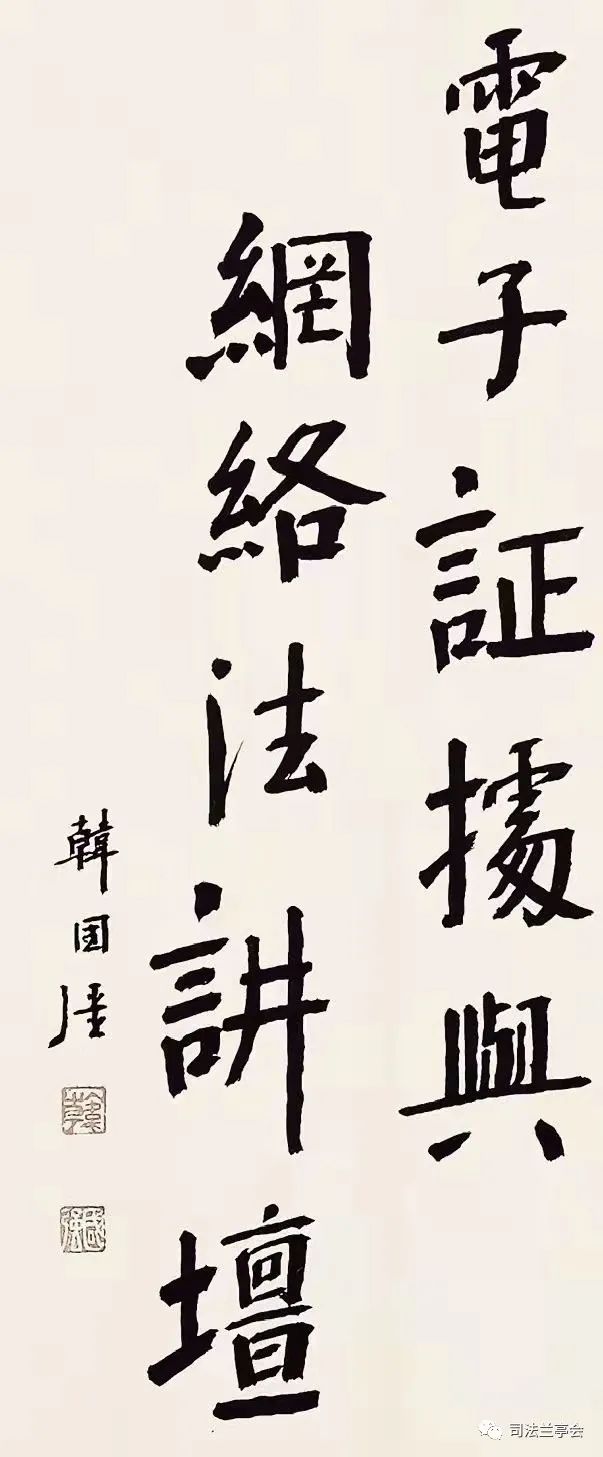 電子証據與
網絡法講壇
韓国强
韓
國強
司法兰亭会